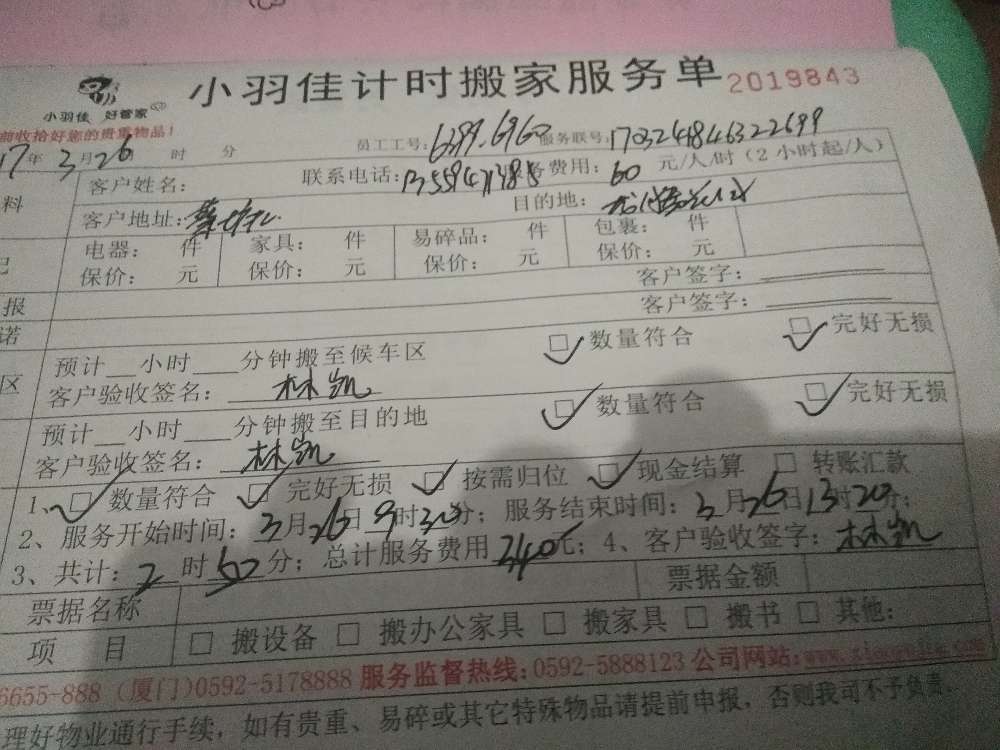 小羽佳计时搬家服务单 2019843
小羽佳 好管家
前收拾好您的贵重物品！
17年3月26 时 分 员工工号：6399.6960 服务联号：170324846322699
料 客户姓名： 联系电话： 务费用：60元/人/时（2小时起/人）
客户地址： 目的地：
电器： 件 家具： 件 易碎品： 件 包裹： 件
保价： 元 保价： 元 保价： 元 保价： 元
报 客户签字：
诺 客户签字：
预计__小时___分钟搬至候车区 □数量符合 □完好无损
区 客户验收签名：林凯
预计__小时___分钟搬至目的地 □数量符合 □完好无损
客户验收签名：林凯
1、□数量符合 □完好无损 □按需归位 □现金结算 □转账汇款
2、服务开始时间：3月26日9时30分；服务结束时间：3月26日13时20分；
3、共计：2时50分；总计服务费用340元；4、客户验收签字：林凯
票据名称 票据金额
项 目 □搬设备 □搬办公家具 □搬家具 □搬书 □其他：
6655-888（厦门）0592-5178888 服务监督热线：0592-5888123 公司网站：
理好物业通行手续，如有贵重、易碎或其它特殊物品请提前申报，否则我司不予负责。